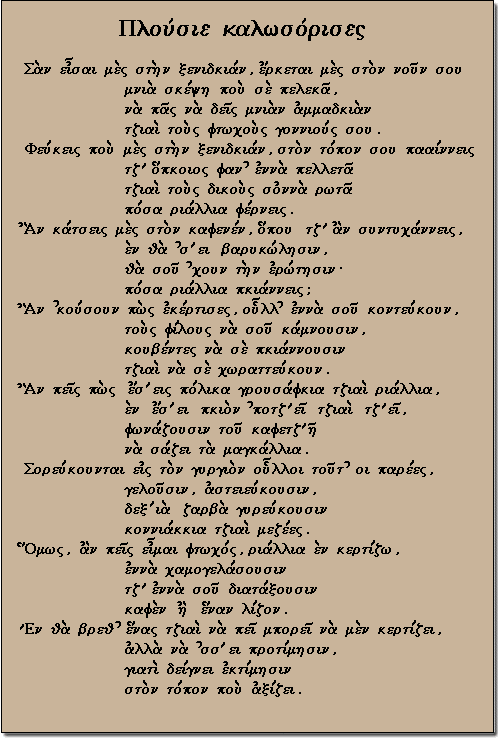 Πλούσιε καλωσόρισες
Σὰν εἶσαι μὲς στὴν ξενιδκιάν, ἔρκεται μὲς στὸν νοῦν σου
μνιὰ σκέψη ποὺ σὲ πελεκᾶ,
νὰ πᾶς νὰ δεῖς μνιὰν ἀμμαδκιὰν
τζιαὶ τοὺς φτωχοὺς γονιούς σου.
Φεύκεις ποὺ μὲς στὴν ξενιδκιάν, στὸν τόπον σου πααίννεις
τζ’ ὅπκοιος φαν᾿ ἐννὰ πελλετᾶ
τζιαὶ τοὺς δικοὺς σὄννὰ ρωτᾶ
πόσα ριάλλια φέρνεις.
Ἂν κάτσεις μὲς στὸν καφενέν, ὅπου τζ’ ἂν συντυχάννεις,
ἐν θὰ ᾿σ’ ει βαρυκώλησιν,
θὰ σοῦ ᾿χουν τὴν ἐρώτησιν·
πόσα ριάλλια πκιάννεις;
Ἂν ᾿κούσουν πὼς ἐκέρτισες, οὖλλ᾿ ἐννὰ σοῦ κοντεύκουν,
τοὺς φίλους νὰ σοῦ κάμνουσιν,
κουβέντες νὰ σὲ πκιάννουσιν
τζιαὶ νὰ σὲ χωραττεύκουν.
Ἂν πεῖς πὼς ἔσ’ εις πόλικα γρουσάφκια τζιαὶ ριάλλια,
ἐν ἔσ’ ει πκιὸν ᾿ποτζ’ εῖ τζιαὶ τζ’ εῖ,
φωνάζουσιν τοῦ καφετζ’ ῆ
νὰ σάζει τὰ μαγκάλλια.
Σορεύκουνται εἰς τὸν γυργιὸν οὖλλοι τοῦτ᾿ οι παρέες,
γελοῦσιν, ἀστειεύκουσιν,
δεξ’ ιὰ ζαρβὰ γυρεύκουσιν
κοννιάκκια τζιαὶ μεζέες.
Ὅμως, ἂν πεῖς εἶμαι φτωχός, ριάλλια ἐν κερτίζω,
ἐννὰ χαμογελάσουσιν
τζ’ ἐννὰ σοῦ διατάξουσιν
καφὲν ἢ ἕναν λίζον.
Ἐν θὰ βρεθ᾿ ἕνας τζιαὶ νὰ πεῖ μπορεῖ νὰ μὲν κερτίζει,
ἀλλὰ νὰ ᾿σσ’ ει προτίμησιν,
γιατὶ δείγνει ἐκτίμησιν
στὸν τόπον ποὺ ἀξίζει.